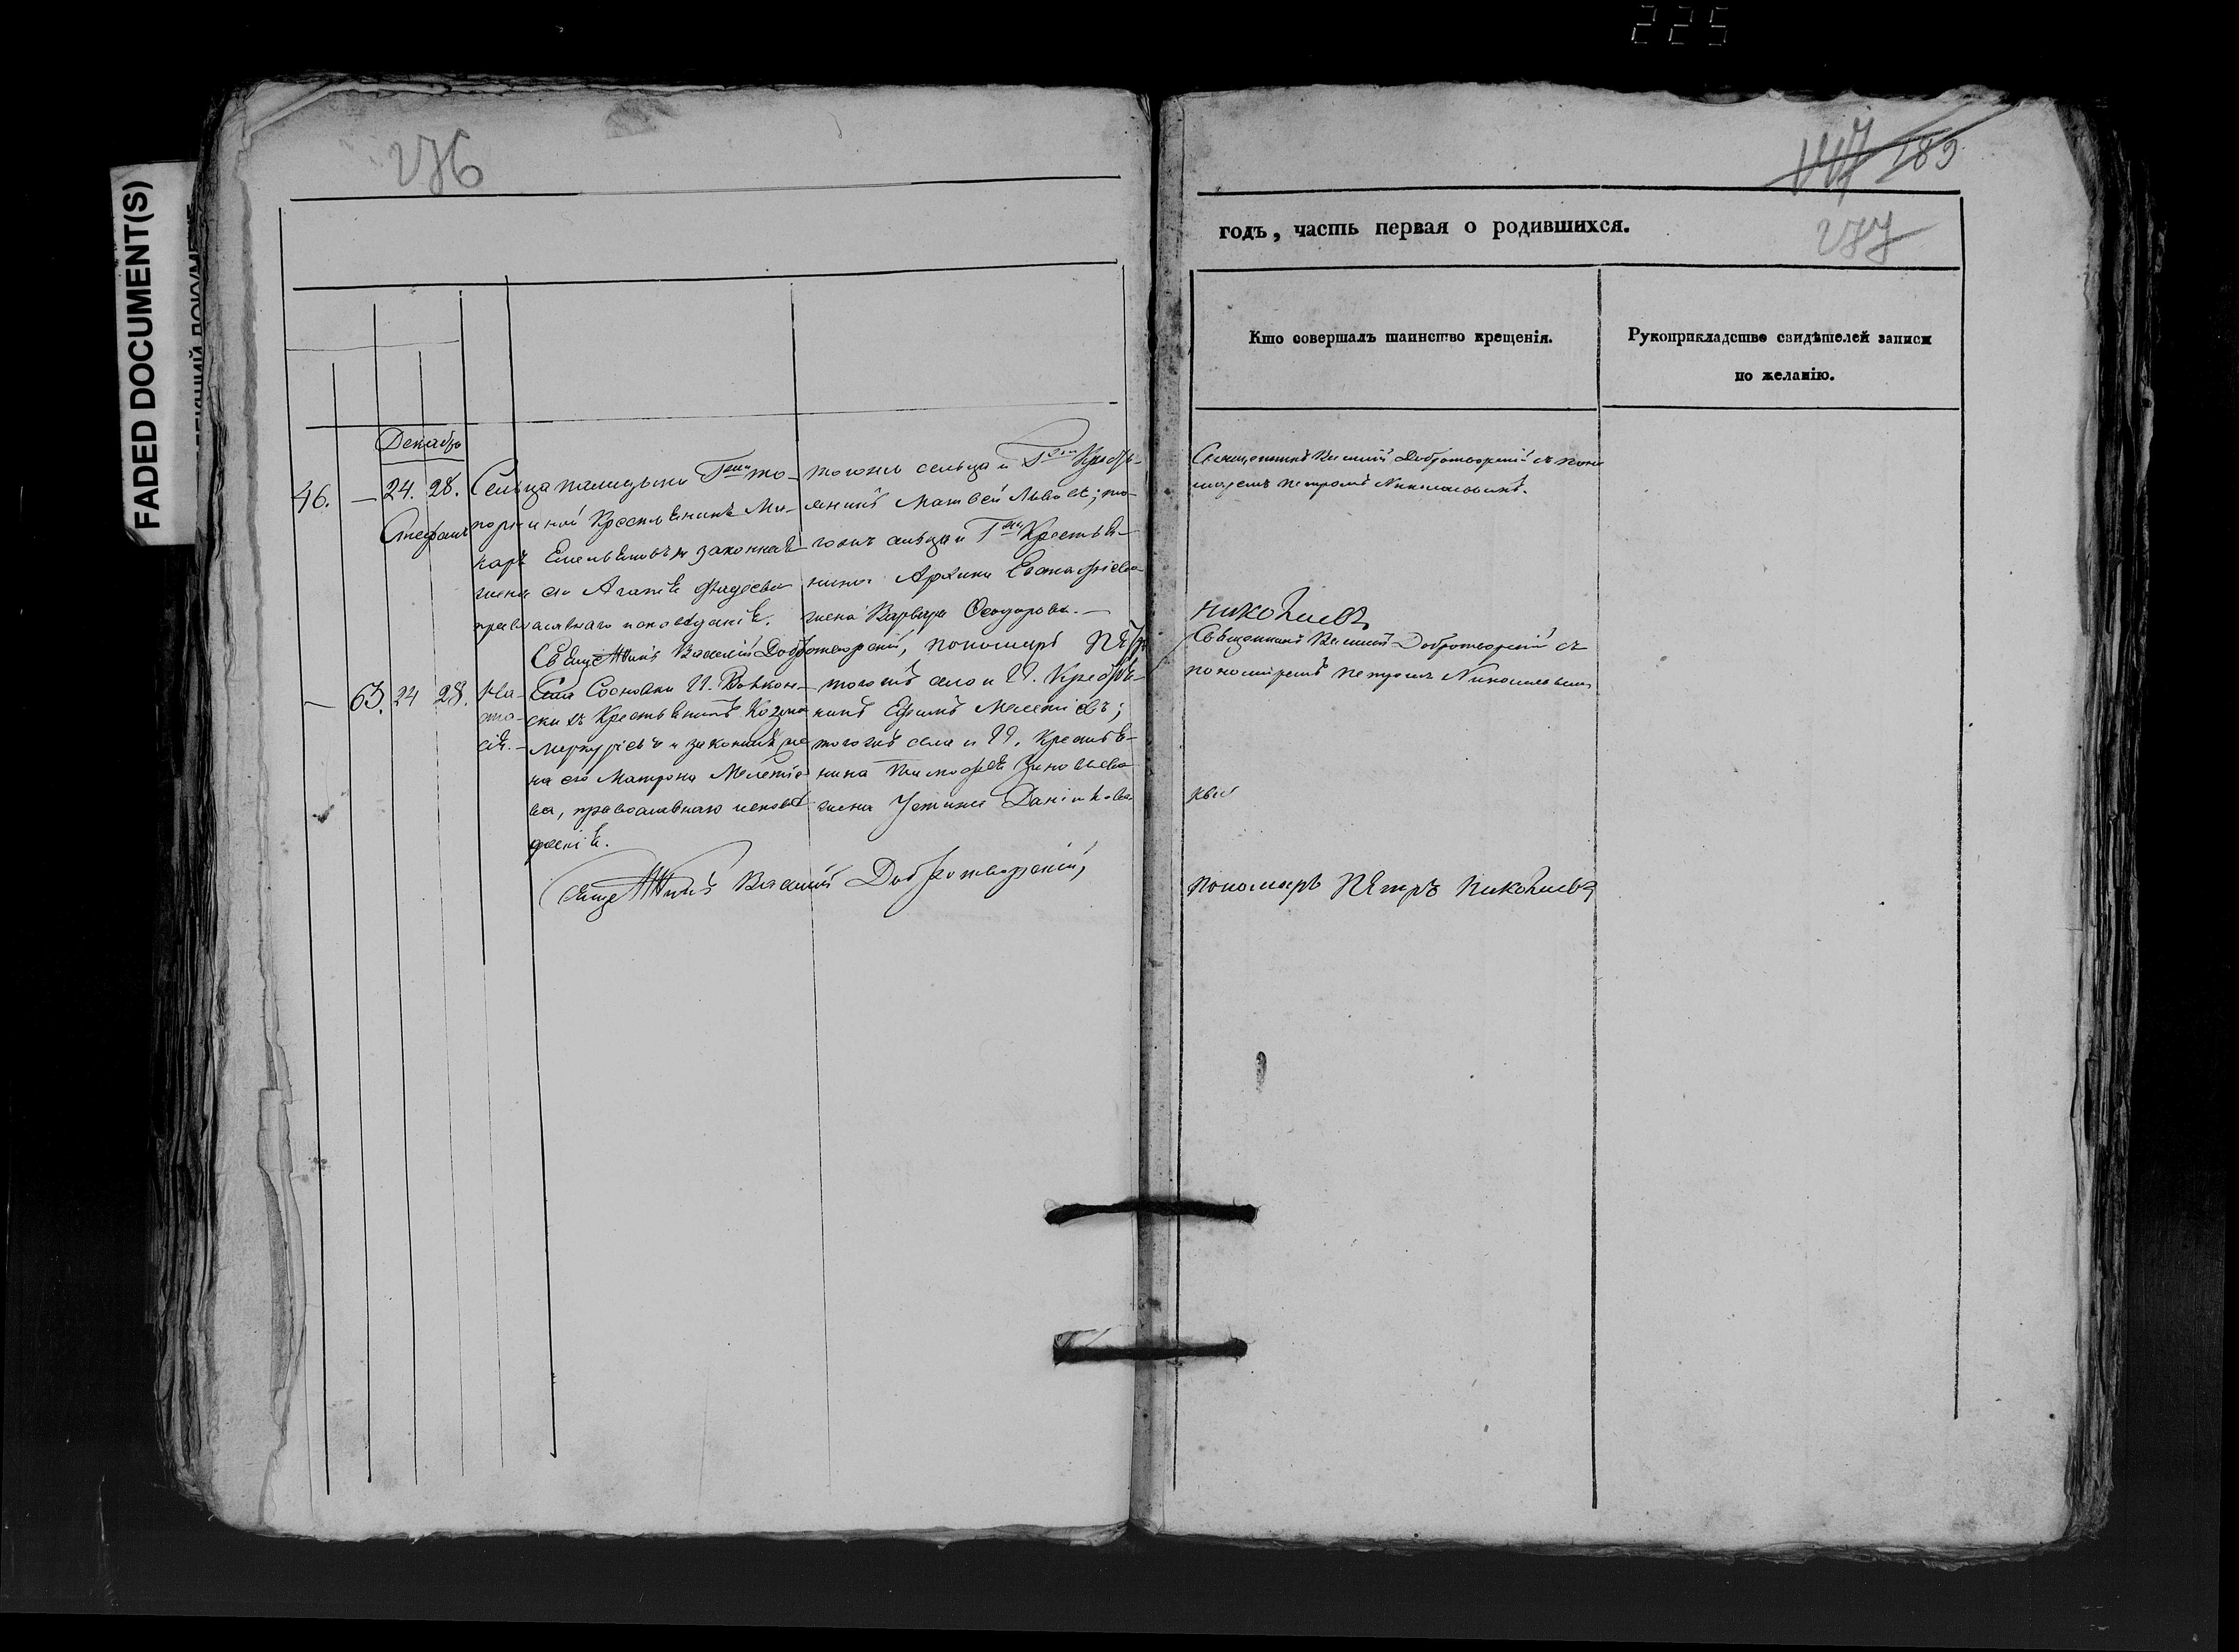 225
FADED DOCUMENT(S)
276
183
277
годъ, часть первая о родившихся.
Кто совершалъ таинство крещенія.
Рукоприкладство свидѣтелей записи
по желанію.
Декабрь
46. — 24. 28. Сельца
Стефанъ
Крестьянинъ
и законная
жена его Агапія Фадѣева
православнаго исповѣданія.
тогожъ сельца и Г
Матвей Львовъ; то-
гожъ сельца и Г Крестья-
нина
жена Варвара Ѳеодорова. —
Священникъ Василій Добротворскій съ поно
маремъ Петромъ Николаевымъ.
Священникъ Василій Добротворскій, пономарь Пётръ
Николаевъ
— 63. 24 28. На-
та-
лія. —
Села Сосновки
Крестьянинъ Козма
Меркурьевъ и законная же
на его Матрона Мелетіе
ва, православнаго исповѣ
данія.
тогожъ села и И. Крестья-
нинъ Ефимъ Мелетіевъ;
тогожъ села и И. Крестья-
нина Тимофея Зиновьева
жена Устинья Данилова
Священникъ Василій Добротворскій съ
пономаремъ Петромъ Николаевымъ
Священникъ Василій Добротворскій,
пономарь Пётръ Николаевъ